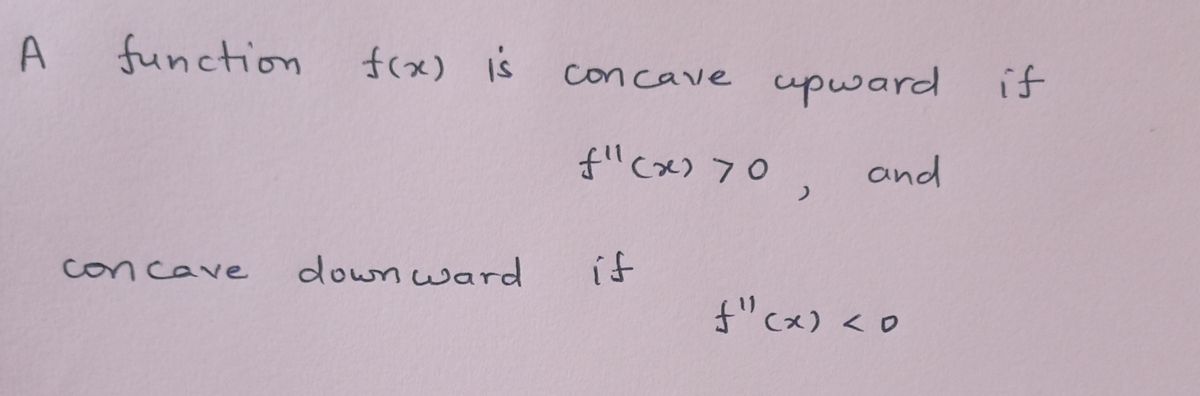 A function f(x) is concave upward if
f''(x) > 0, and
concave downward if
f''(x) < 0